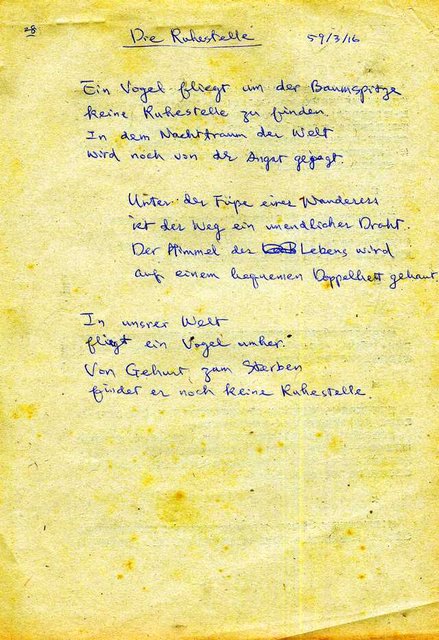 28
Die Ruhestelle 59/3/16
Ein Vogel fliegt um der Baumspitze
keine Ruhestelle zu finden.
In dem Nachttraum der Welt
wird noch von der Angst gejagt.
Unter der Füße eines Wanderers
ist der Weg ein unendlicher Draht.
Der Himmel des Lebens wird
auf einem bequemen Doppelbett gebaut.
In unsrer Welt
fliegt ein Vogel umher.
Von Geburt zum Sterben
findet er noch keine Ruhestelle.